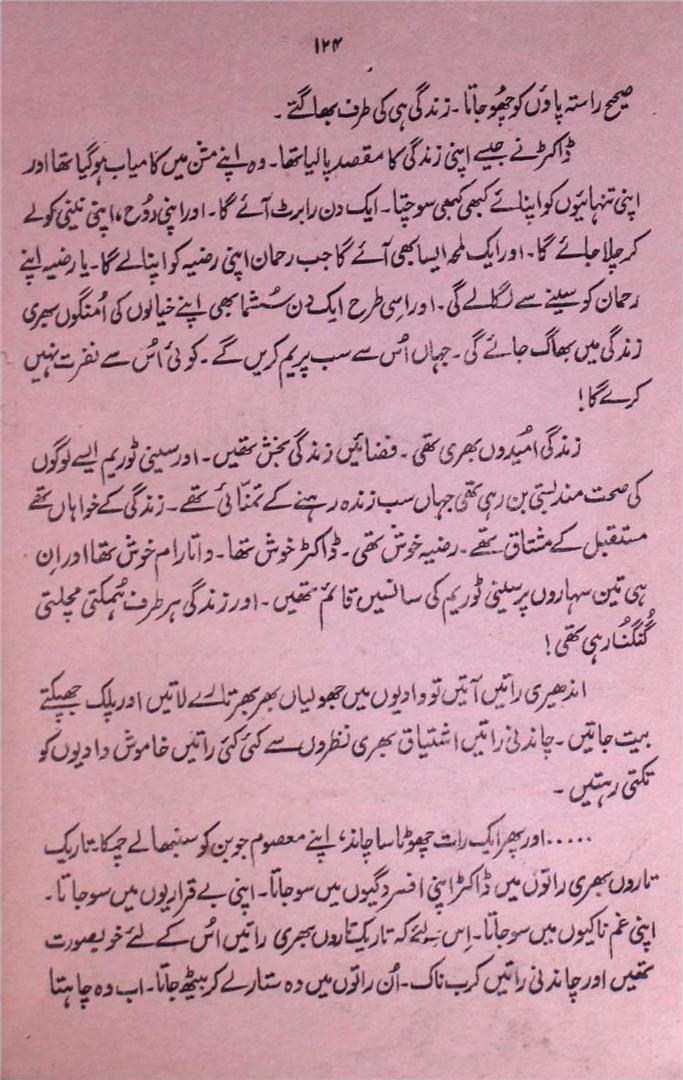 ۱۲۴
صحیح راستہ پاؤں کو چھُو جاتا ۔ زندگی ہی کی طرف بھاگتے ۔
ڈاکٹر نے جیسے اپنی زندگی کا مقصد پا لیا تھا ۔ وہ اپنے مشن میں کامیاب ہو گیا تھا اور
اپنی تنہائیوں کو اپنائے کبھی کبھی سوچتا ۔ ایک دن رابرٹ آئے گا ۔ اور اپنی رُوح ، اپنی نینی کو لے
کر چلا جائے گا ۔ اور ایک لمحہ ایسا بھی آئے گا جب رحمان اپنی رضیہ کو اپنا لے گا ۔ یا رضیہ اپنے
رحمان کو سینے سے لگا لے گی ۔ اور اسی طرح ایک دن سُشما بھی اپنے خیالوں کی اُمنگوں بھری
زندگی میں بھاگ جائے گی ۔ جہاں اُس سے سب پریم کریں گے ۔ کوئی اُس سے نفرت نہیں
کرے گا !
زندگی امُیدوں بھری تھی ۔ فضائیں زندگی بخش تھیں ۔ اور سینی ٹوریم ایسے لوگوں
کی صحت مند بستی بن رہی تھی جہاں سب زندہ رہنے کے تمنّائی تھے ۔ زندگی کے خواہاں تھے
مستقبل کے مشتاق تھے ۔ رضیہ خوش تھی ۔ ڈاکٹر خوش تھا ۔ داتا رام خوش تھا اور اِن
ہی تین سہاروں پر سینی ٹوریم کی سانسیں قائم تھیں ۔ اور زندگی ہر طرف ہُمکتی مچلتی
گُنگُنا رہی تھی !
اندھیری راتیں آتیں تو وادیوں میں جھولیاں بھر بھر تارے لاتیں اور پلک جھپکتے
بیت جاتیں ۔ چاندنی راتیں اشتیاق بھری نظروں سے کئی کئی راتیں خاموش وادیوں کو
تکتی رہتیں ۔
..... اور پھر ایک رات چھوٹا سا چاند ، اپنے معصوم جوبن کو سنبھالے چمکا ۔ تاریک
تاروں بھری راتوں میں ڈاکٹر اپنی افسردگیوں میں سو جاتا ۔ اپنی بے قراریوں میں سو جاتا ۔
اپنی غم ناکیوں میں سو جاتا ۔ اِس لئے کہ تاریک تاروں بھری راتیں اُس کے لئے خوبصورت
تھیں اور چاندنی راتیں کرب ناک ۔ اُن راتوں میں وہ ستار لے کر بیٹھ جاتا ۔ اب وہ چاہتا